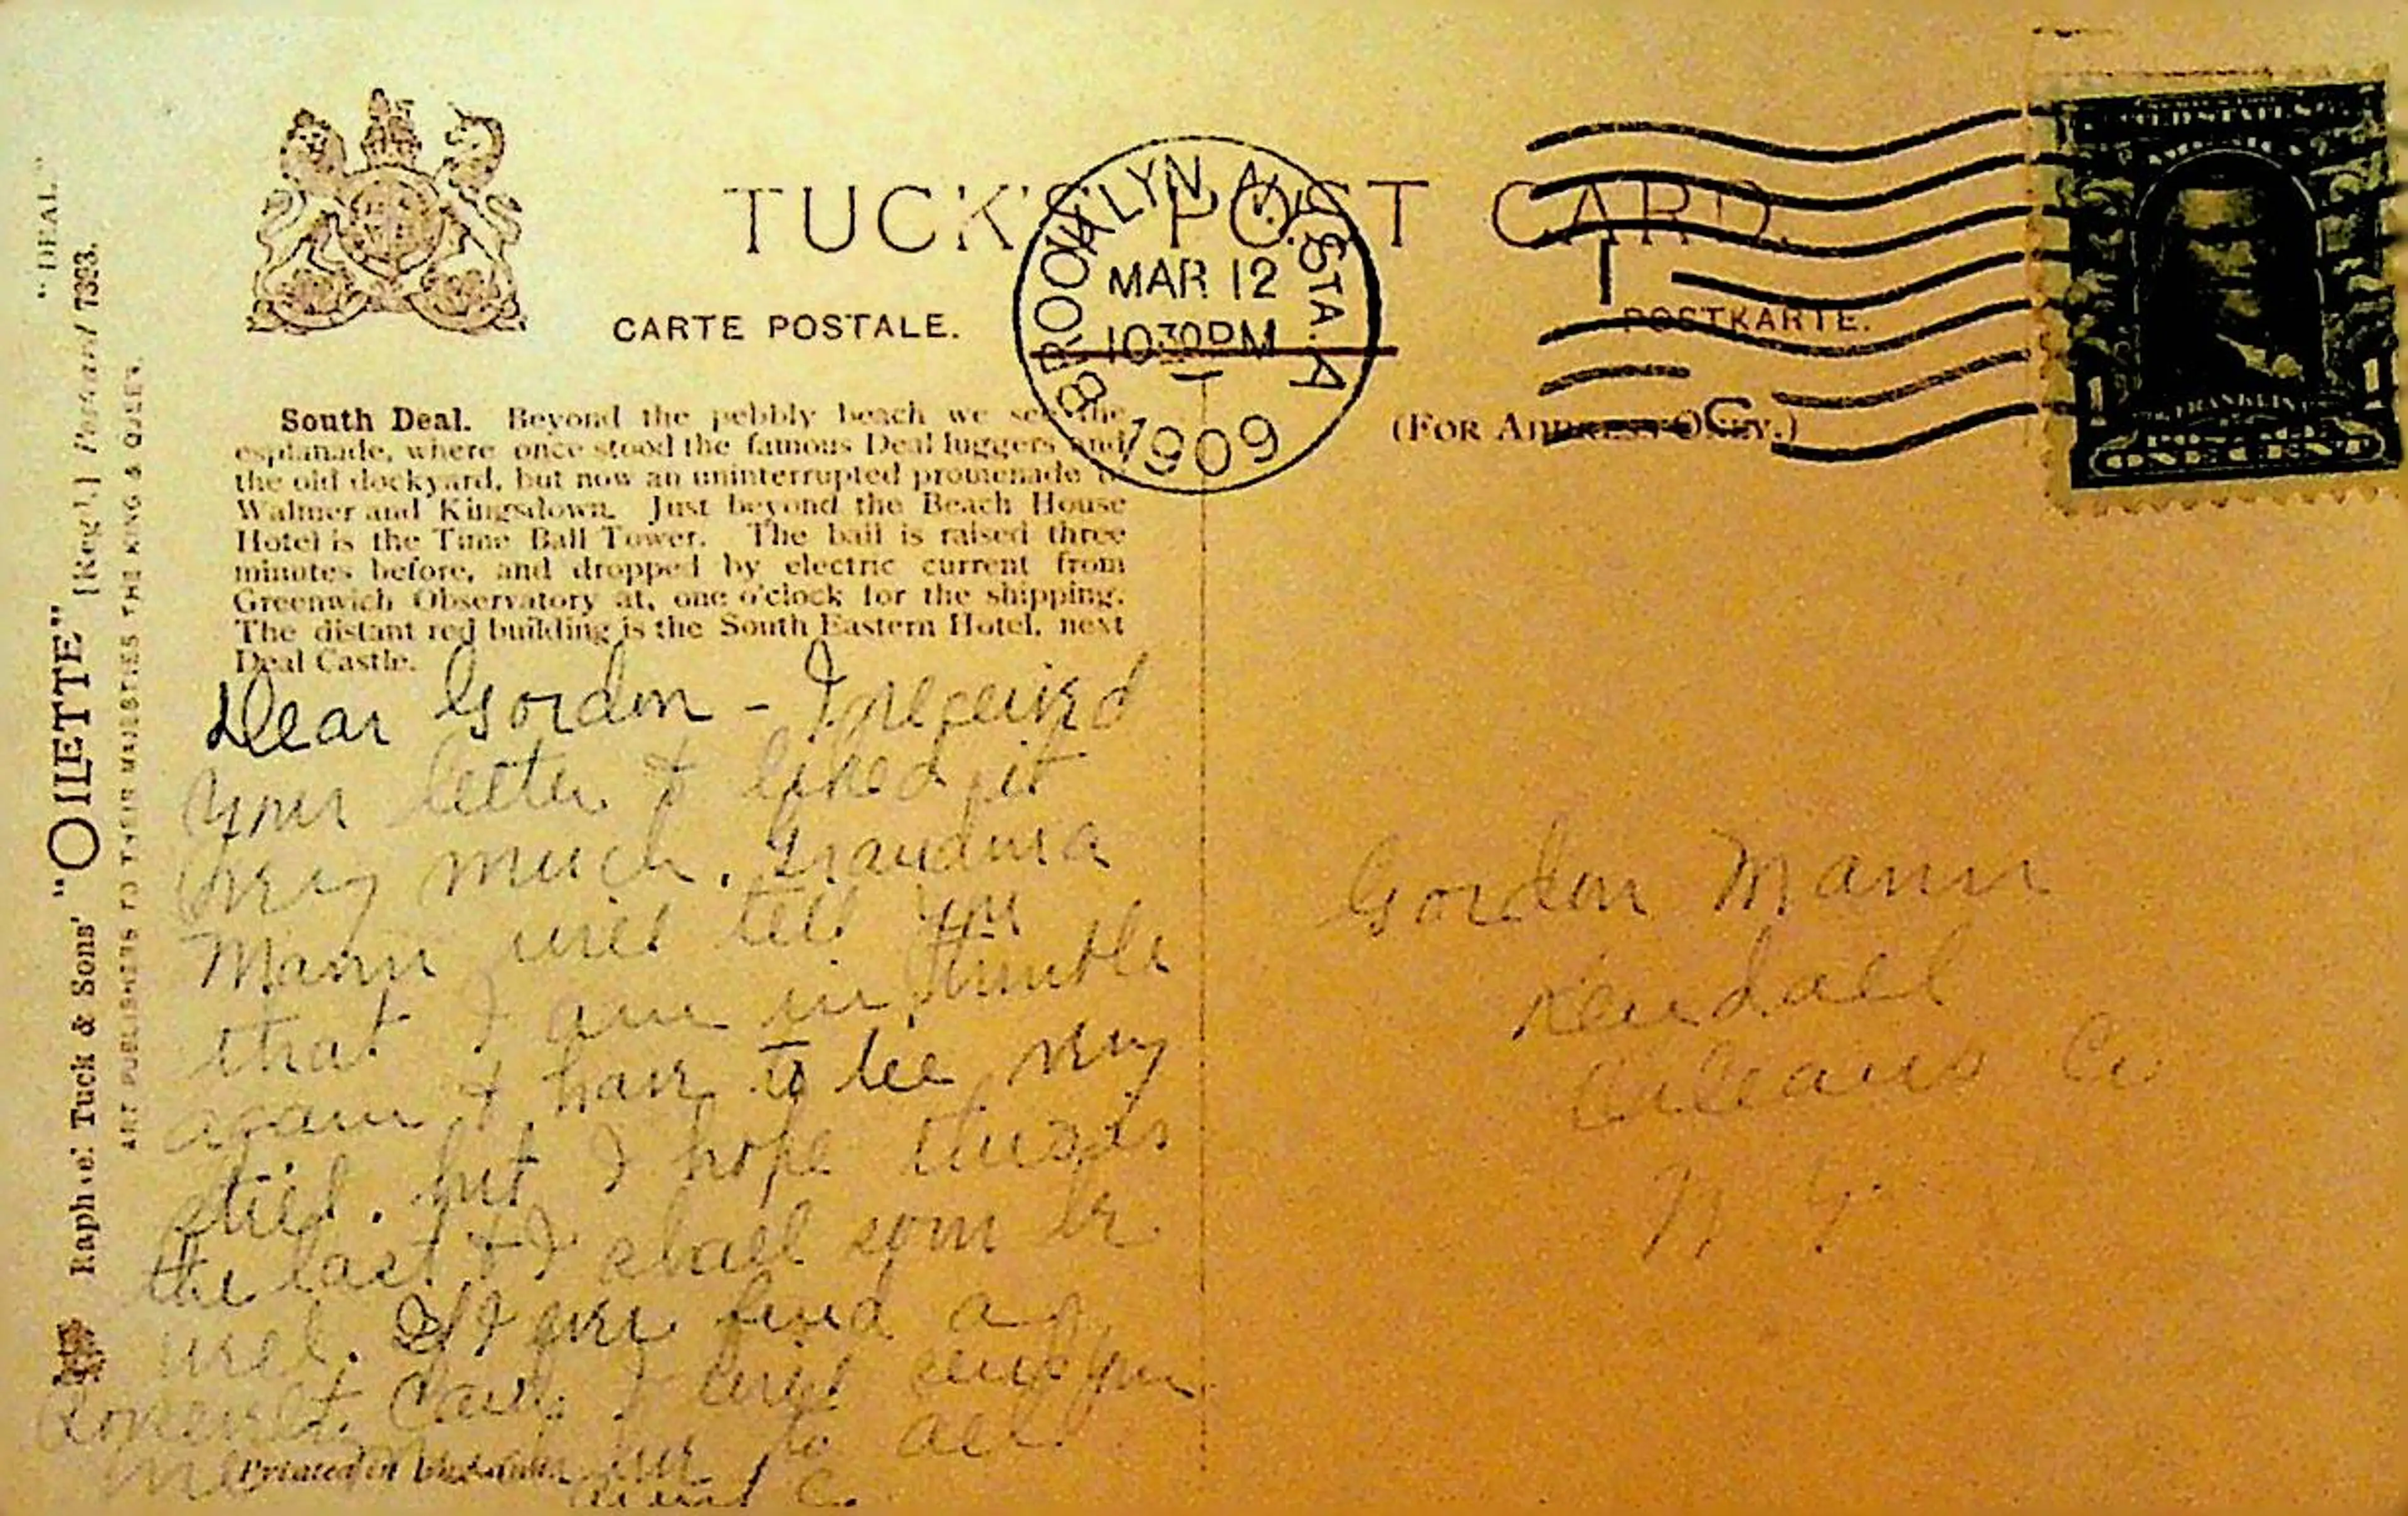 TUCK'S POST CARD.
CARTE POSTALE.
POSTKARTE.
(FOR ADDRESS ONLY.)
BROOKLYN N.Y. STA. A
MAR 12
10 30 PM
1909
UNITED STATES OF AMERICA
FRANKLIN
1 1
POSTAGE
ONE CENT
South Deal. Beyond the pebbly beach we see the
esplanade, where once stood the famous Deal luggers and
the old dockyard, but now an uninterrupted promenade to
Walmer and Kingsdown. Just beyond the Beach House
Hotel is the Time Ball Tower. The ball is raised three
minutes before, and dropped by electric current from
Greenwich Observatory at, one o'clock for the shipping.
The distant red building is the South Eastern Hotel, next
Deal Castle.
Dear Gordon - I received
your letter & liked it
very much. Grandma
Mann will tell you
that I am in trouble
again & have to lie very
still. but I hope this is
the last & I shall soon be
well. If I ever find a
Roosevelt Card, I will send you
to all
Aunt C.
Printed in
Gordon Mann
Kendall
Orleans Co
N. Y.
"DEAL."
Raphael Tuck & Sons' "OILETTE" [Regd.] Postcard 7323.
ART PUBLISHERS TO THEIR MAJESTIES THE KING & QUEEN.